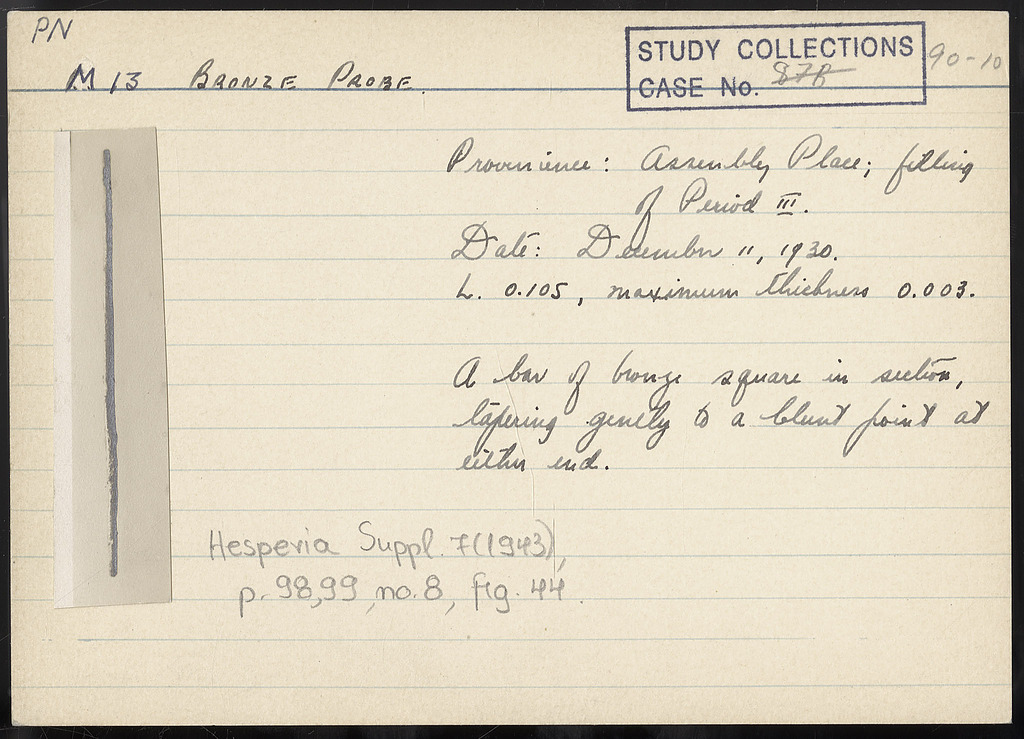 PN
M 13 BRONZE PROBE.
STUDY COLLECTIONS
CASE No. 87B
90-10
Provenience: Assembly Place; filling
of Period III.
Date: December 11, 1930.
L. 0.105, maximum thickness 0.003.
A bar of bronze square in section,
tapering gently to a blunt point at
either end.
Hesperia Suppl. 7(1943),
p. 98,99, no. 8, fig. 44.